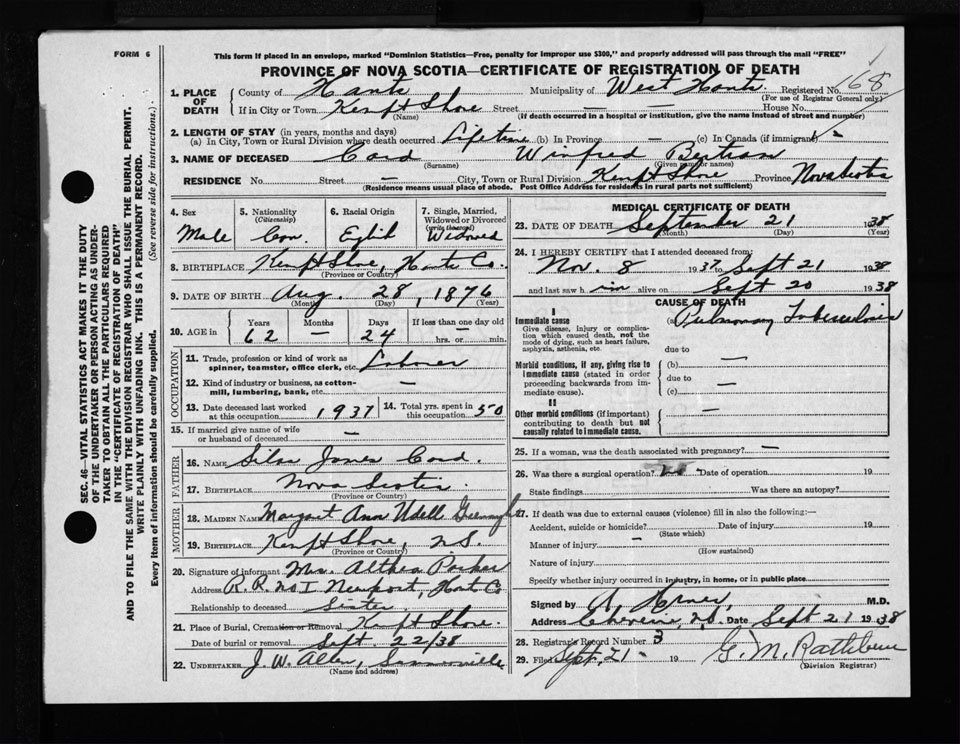 FORM 6
This form if placed in an envelope, marked "Dominion Statistics—Free, penalty for improper use $300," and properly addressed will pass through the mail "FREE"
PROVINCE OF NOVA SCOTIA—CERTIFICATE OF REGISTRATION OF DEATH
168
1. PLACE OF DEATH County of Hants Municipality of West Hants Registered No.
(For use of Registrar General only)
If in City or Town Kempt Shore Street — House No. —
(Name) (If death occurred in a hospital or institution, give the name instead of street and number)
2. LENGTH OF STAY (in years, months and days)
(a) In City, Town or Rural Division where death occurred Lifetime (b) In Province — (c) In Canada (if immigrant) —
3. NAME OF DECEASED Card Winfred Bertran
(Surname) (Given name or names)
RESIDENCE No. Street — City, Town or Rural Division Kempt Shore Province Nova Scotia
(Residence means usual place of abode. Post Office Address for residents in rural parts not sufficient)
4. Sex Male
5. Nationality (Citizenship) Can.
6. Racial Origin English
7. Single, Married, Widowed or Divorced (write the word) Widowed
8. BIRTHPLACE Kempt Shore, Hants Co.
(Province or Country)
9. DATE OF BIRTH Aug. 28, 1876
(Month) (Day) (Year)
10. AGE in Years Months Days If less than one day old
62 — 24 hrs. or — min.
OCCUPATION
11. Trade, profession or kind of work as spinner, teamster, office clerk, etc. Laborer
12. Kind of industry or business, as cotton-mill, lumbering, bank, etc. —
13. Date deceased last worked at this occupation 1937
14. Total yrs. spent in this occupation 50
15. If married give name of wife or husband of deceased —
FATHER
16. NAME Silas James Card.
17. BIRTHPLACE Nova Scotia
(Province or Country)
MOTHER
18. MAIDEN NAME Margaret Ann Udell Greenough
19. BIRTHPLACE Kempt Shore, N.S.
(Province or Country)
20. Signature of informant Mrs. Althea Parker
Address R.R. No 1 Newport, Hants Co
Relationship to deceased Sister
21. Place of Burial, Cremation or Removal Kempt Shore.
Date of burial or removal Sept. 22/38
22. UNDERTAKER J. W. Allen, Summerville
(Name and address)
MEDICAL CERTIFICATE OF DEATH
23. DATE OF DEATH September 21 1938
(Month) (Day) (Year)
24. I HEREBY CERTIFY that I attended deceased from:
Nov. 8 1937 to Sept 21 1938
and last saw him alive on Sept 20 1938
CAUSE OF DEATH
I
Immediate cause (a) Pulmonary Tuberculosis
Give disease, injury or complication which caused death, not the mode of dying, such as heart failure, asphyxia, asthenia, etc.
due to —
Morbid conditions, if any, giving rise to immediate cause (stated in order proceeding backwards from immediate cause).
(b)
due to —
(c)
II
Other morbid conditions (if important) contributing to death but not causally related to immediate cause. —
25. If a woman, was the death associated with pregnancy? —
26. Was there a surgical operation? no Date of operation 19
State findings Was there an autopsy?
27. If death was due to external causes (violence) fill in also the following:—
Accident, suicide or homicide? Date of injury 19
(State which)
Manner of injury —
(How sustained)
Nature of injury
Specify whether injury occurred in industry, in home, or in public place
Signed by M.D.
Address Cheverie, N.S. Date Sept 21 1938
28. Registrar's Record Number 3
29. Filed Sept. 21 - 19 G. M. Rathbun
(Division Registrar)
SEC. 46—VITAL STATISTICS ACT MAKES IT THE DUTY
OF THE UNDERTAKER OR PERSON ACTING AS UNDER-
TAKER TO OBTAIN ALL THE PARTICULARS REQUIRED
IN THE "CERTIFICATE OF REGISTRATION OF DEATH"
AND TO FILE THE SAME WITH THE DIVISION REGISTRAR WHO SHALL ISSUE THE BURIAL PERMIT.
WRITE PLAINLY WITH UNFADING INK. THIS IS A PERMANENT RECORD.
Every item of information should be carefully supplied. (See reverse side for instructions.)